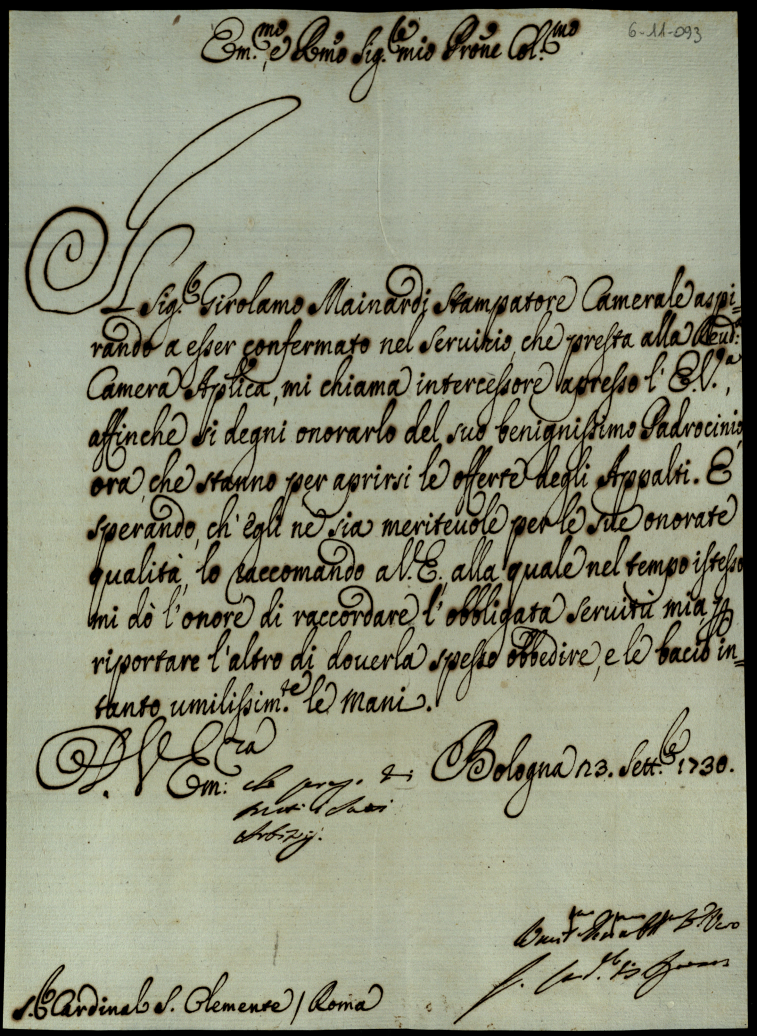 6-11-093
Em.mo e Rmo Sig.re mio Prone Col.mo
Il Sig.r Girolamo Mainardi Stampatore Camerale aspi=
rando a esser confermato nel Servizio, che presta alla Reud:a
Camera Aplica, mi chiama intercessore apresso l'E.V.,
affinche si degni onorarlo del suo benignissimo Padrocinio,
ora, che stanno per aprirsi le offerte degli Appalti. E
sperando, ch'egli ne sia meriteuole per le sue onorate
qualità, lo raccomando a V.E. alla quale nel tempo istesso
mi dò l'onore di raccordare l'obbligata seruitù mia p
riportare l'altro di douerla spesso obbedire, e le bacio in=
tanto umilissim.te le Mani.
D. V. Em: za
Bologna 23. Sett.re 1730.
S.r Cardinal S. Clemente / Roma